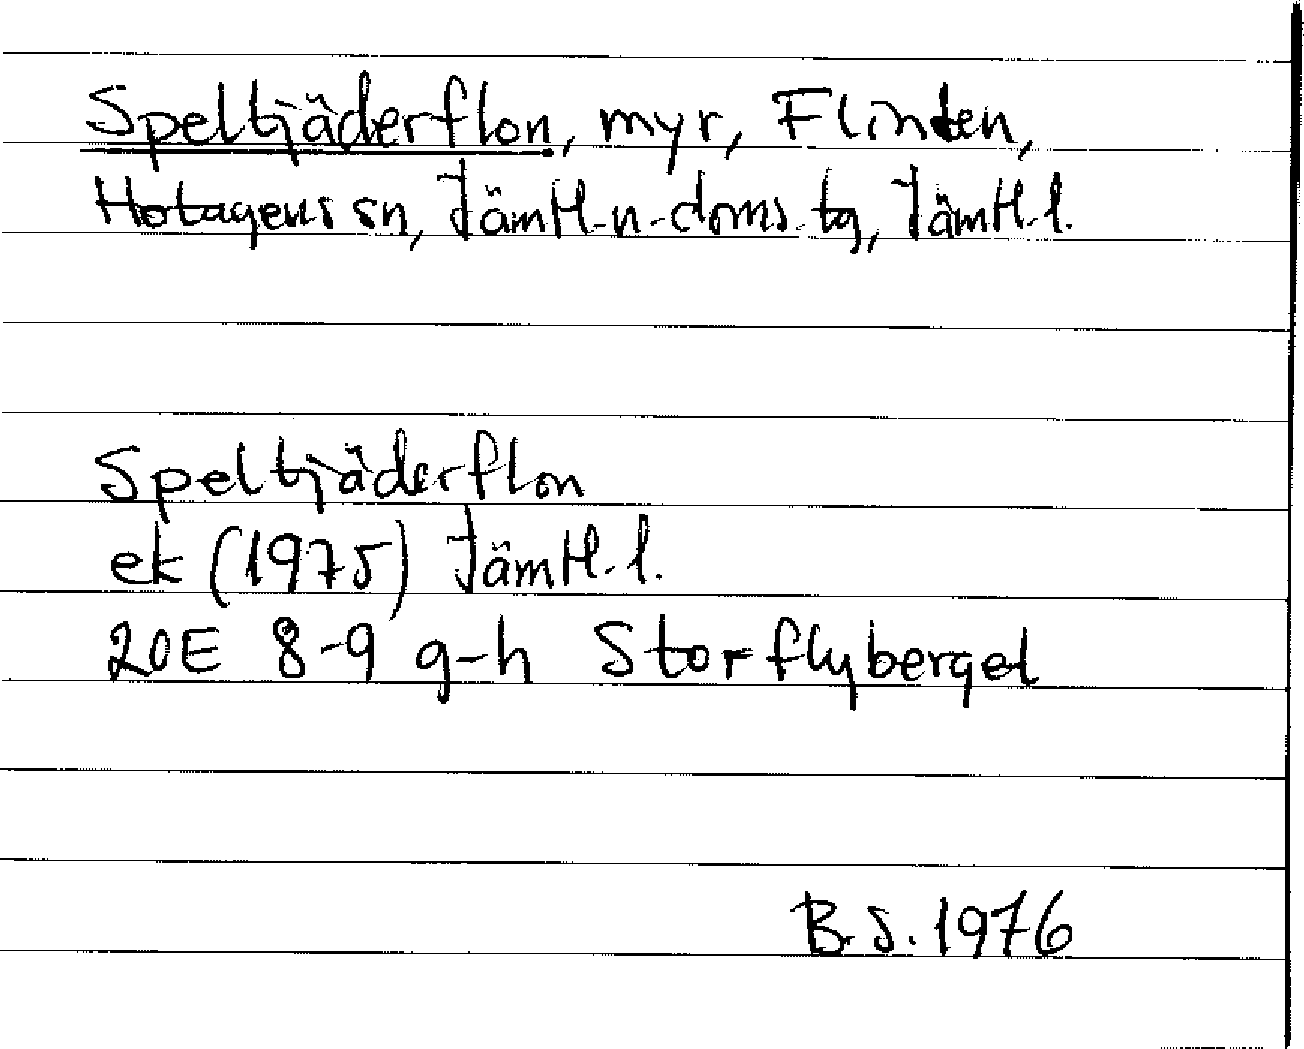 Speltjäderflon, myr, Flinten,
Hotagens sn, Jämtl. n. doms. tg, Jämtl. l.
Speltjäderflon
ek (1975) Jämtl. l.
20E 8-9 g-h Storflyberget
B. S. 1976